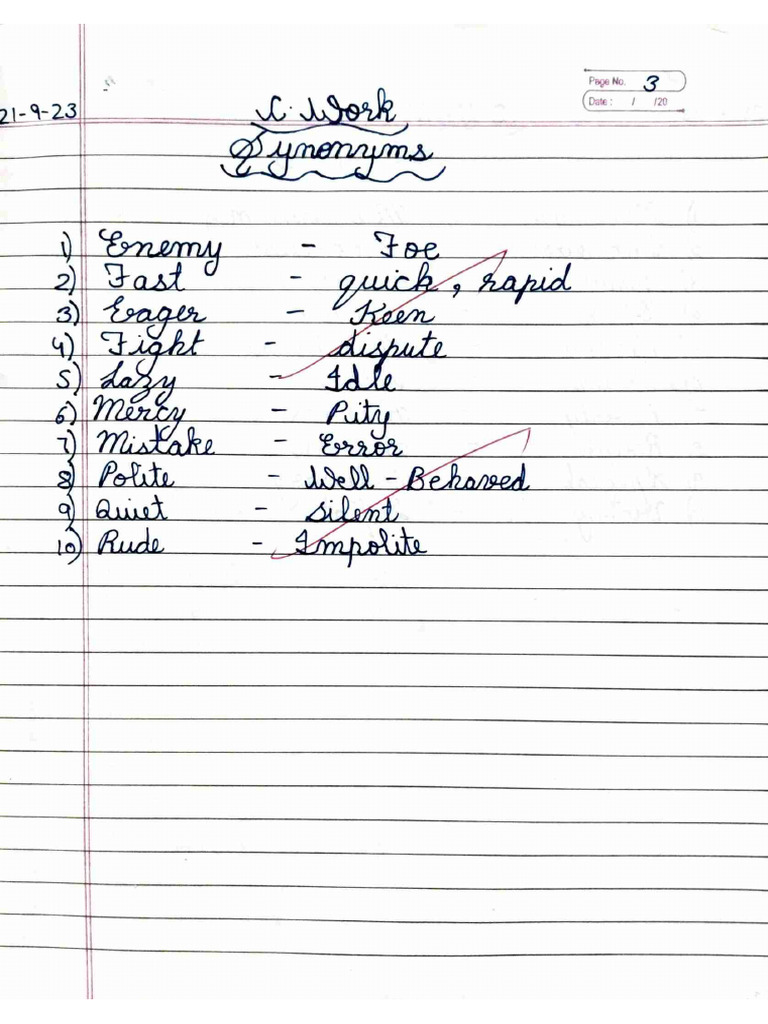 Page No. 3
Date : / /20
21-9-23
C. Work
Synonyms
1) Enemy - Foe
2) Fast - quick, rapid
3) Eager - Keen
4) Fight - dispute
5) Lazy - Idle
6) Mercy - Pity
7) Mistake - Error
8) Polite - Well-Behaved
9) Quiet - silent
10) Rude - Impolite